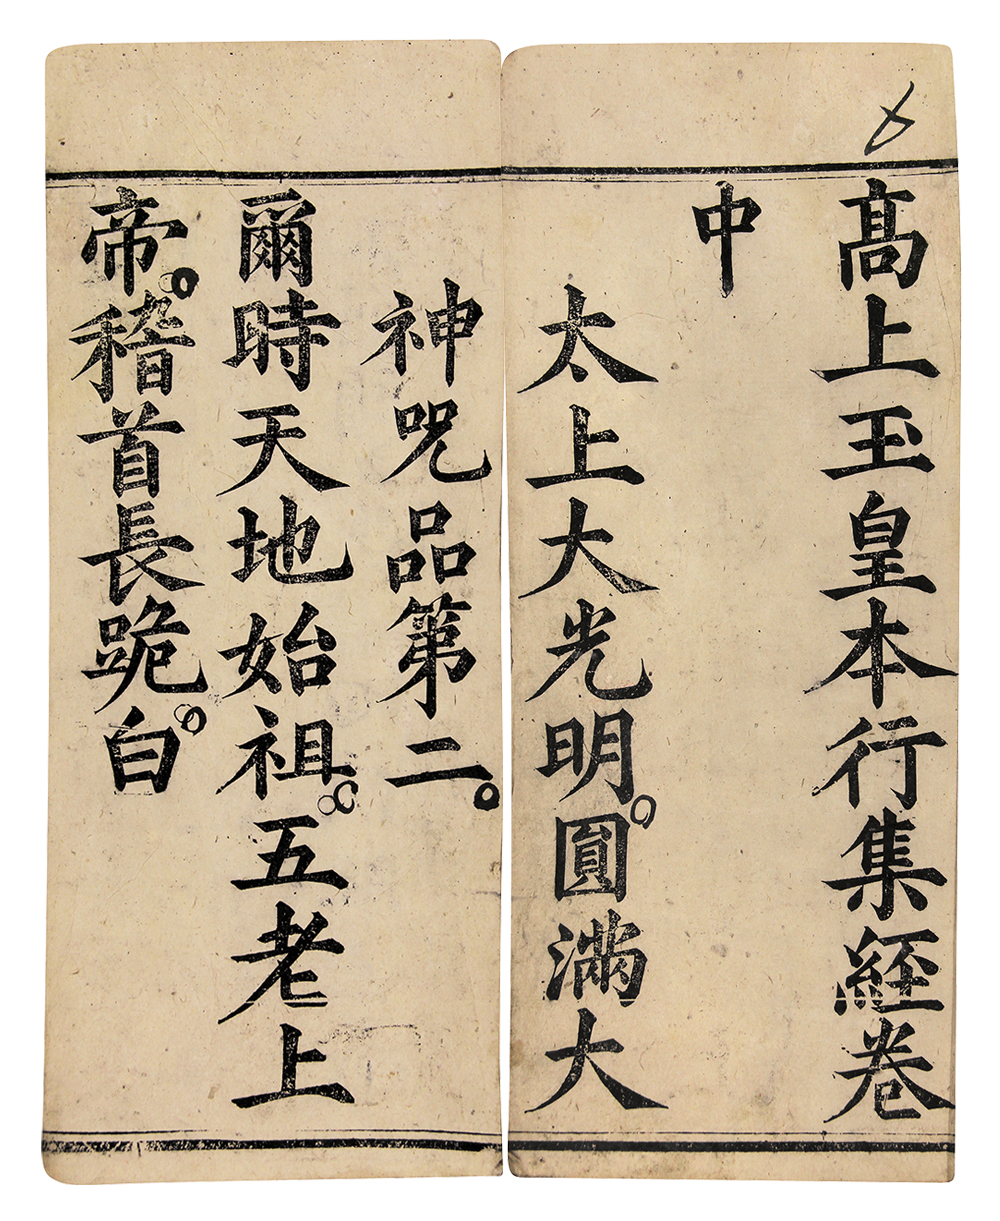 髙上玉皇本行集經卷
中
太上大光明。圎滿大
神咒品第二。
爾時天地始祖。五老上
帝。稽首長跪。白